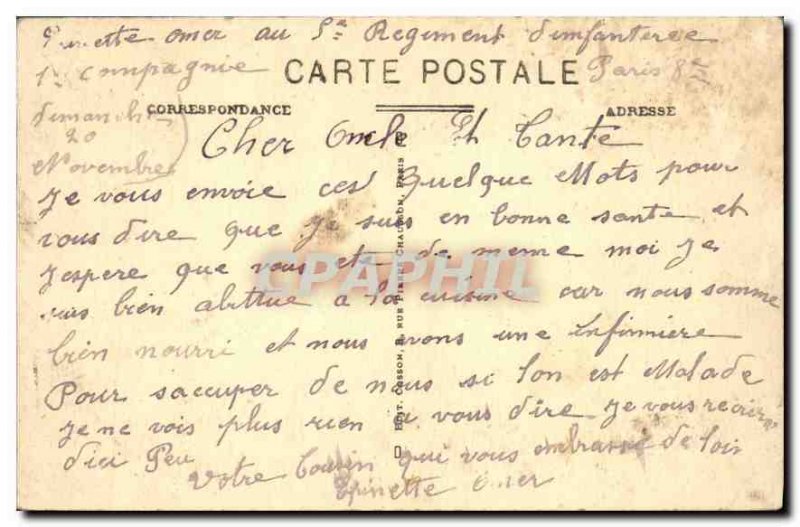 Epinette omer au 5me Regiment d'infanterie
1re Compagnie
CARTE POSTALE
Paris 8me
CORRESPONDANCE
ADRESSE
dimanche
20
Novembre
Cher Oncle Et Tante
Je vous envoie ces Quelque Mots pour
vous dire que Je suis en bonne sante et
Jespere que vous ete de meme moi Je
suis bien abittue a la cuisine car nous somme
bien nourri et nous avons une infirmiere
Pour saccuper de nous si lon est Malade
Je ne vois plus rien a vous dire Je vous revoire
dici Peu
Votre Cousin qui vous embrasse de loin
Epinette Omer
EDIT. COSSON, RUE PIERRE CHAUSSON, PARIS
CPAPHIL